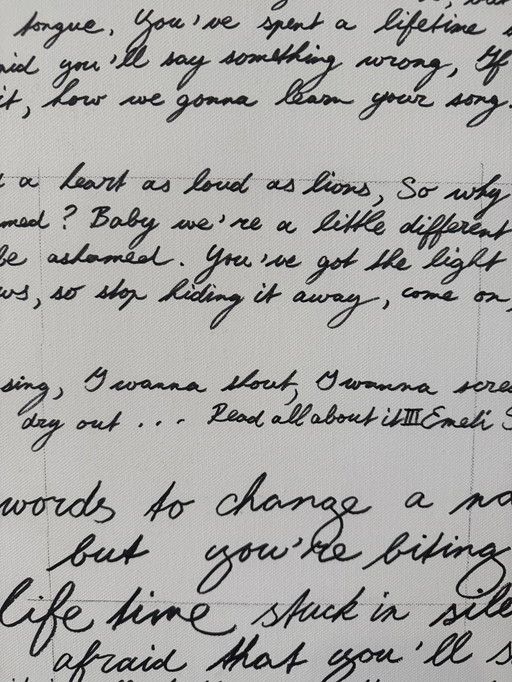 tongue, You've spent a lifetime
you'll say something wrong, If
it, how we gonna learn your song.
a heart as loud as lions, So why
med? Baby we're a little different
be ashamed. You've got the light
ws, so stop hiding it away, come on,
sing, I wanna shout, I wanna screa
dry out ... Read all about it III Emeli S
words to change a na
but you're biting
life time stuck in sile
afraid that you'll s